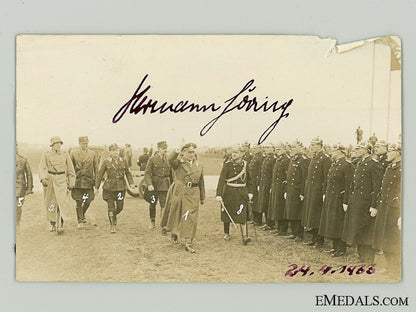 Hermann Göring
5 6 4 2 3 1 8
24.4.1933
EMEDALS.COM